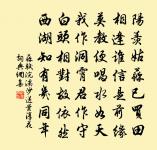 陽羨姑蘇已買田
相逢誰信是前緣
莫教便唱水如天
我作洞霄君作守
白頭相對故依然
西湖知有幾同年
蘇軾浣溪沙送葉淳老
詞典網集